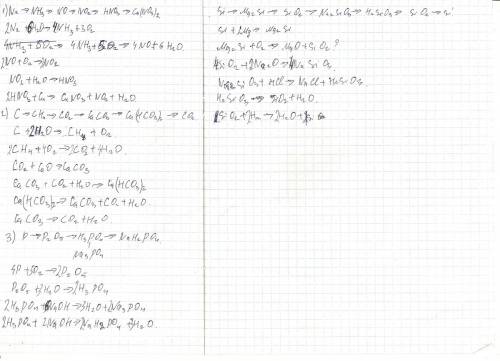 1) N2 → NH3 → NO → NO2 → HNO3 → Cu(NO3)2
2N2 + 6H2O → 4NH3 + 3O2
4NH3 + 5O2 → 4NH3 + 5O2 → 4NO + 6H2O
2NO + O2 → 2NO2
NO2 + H2O → HNO3
2HNO3 + Cu → CuNO3 + NO2 + H2O
2) C → CH4 → CO2 → CaCO3 → Ca(HCO3)2 → CO2
C + 2H2O → CH4 + O2
2CH4 + 4O2 → 2CO2 + 4H2O
CO2 + CaO → CaCO3
CaCO3 + CO2 + H2O → Ca(HCO3)2
Ca(HCO3)2 → CaCO3 + CO2 + H2O
CaCO3 → CO2 + H2O
3) P → P2O5 → H3PO4 → NaH2PO4
Na3PO4
4P + 5O2 → 2P2O5
P2O5 + 3H2O → 2H3PO4
2H3PO4 + 6NaOH → 3H2O + 2Na3PO4
2H3PO4 + 2NaOH → 2NaH2PO4 + 2H2O
Si → Mg2Si → SiO2 → Na2SiO3 → H2SiO3 → SiO2 → Si
Si + 2Mg → Mg2Si
Mg2Si + O2 → MgO + SiO2 ?
SiO2 + 2Na2O → Na2SiO3
Na2SiO3 + HCl → NaCl + H2SiO3
H2SiO3 → SiO2 + H2O
SiO2 + 2H2 → 2H2O + Si